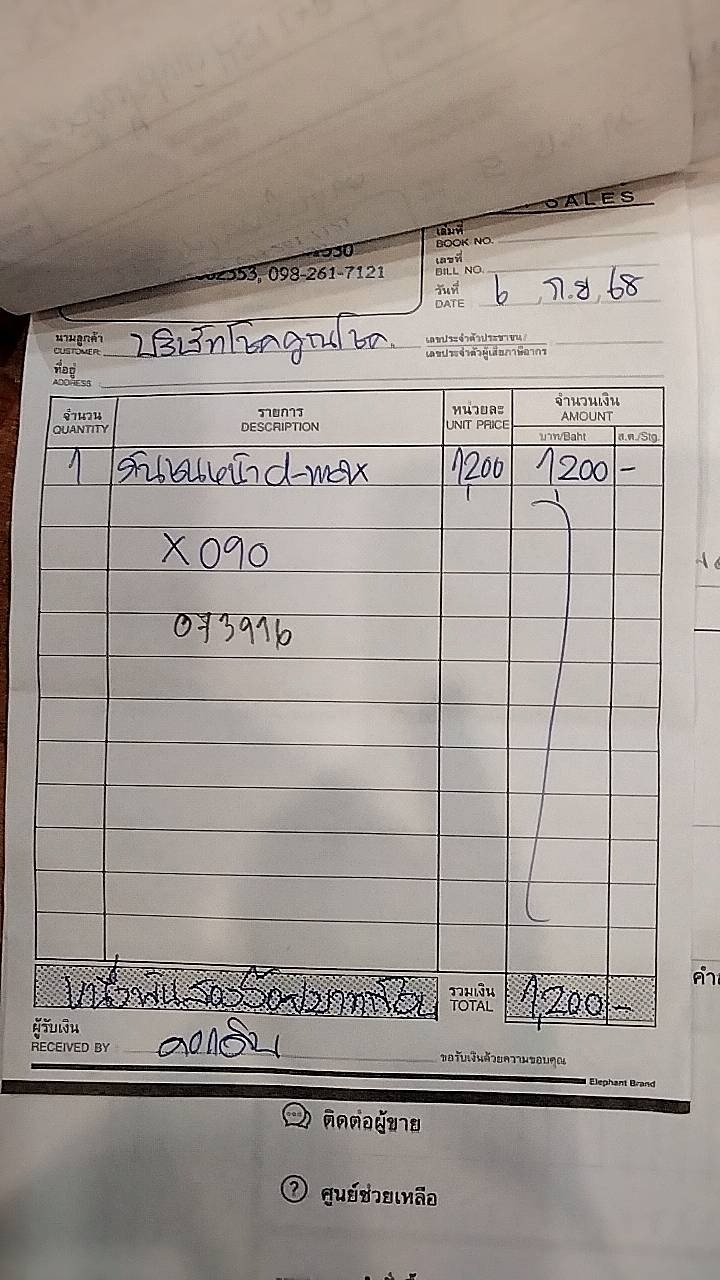 SALES
เล่มที่
BOOK NO.
เลขที่
BILL NO.
098-261-7121
วันที่
DATE 6 ก.ย. 68
นามลูกค้า
CUSTOMER บริษัทโชคคูณโชค
เลขประจำตัวประชาชน/
เลขประจำตัวผู้เสียภาษีอากร
ที่อยู่
ADDRESS
จำนวน
QUANTITY
รายการ
DESCRIPTION
หน่วยละ
UNIT PRICE
จำนวนเงิน
AMOUNT
บาท/Baht ส.ต./Stg.
1 กันชนหน้า d-max 1200 1200 -
X 090
073916
รวมเงิน
TOTAL
1,200 -
ผู้รับเงิน
RECEIVED BY
ขอรับเงินด้วยความขอบคุณ
Elephant Brand
ติดต่อผู้ขาย
? ศูนย์ช่วยเหลือ